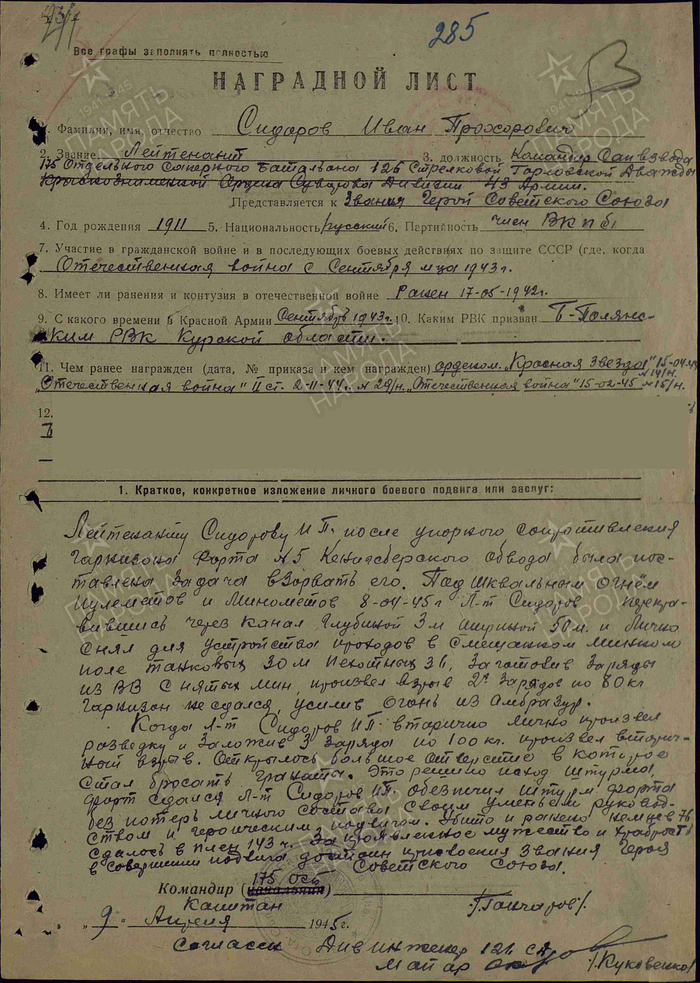 285
Все графы заполнять полностью
НАГРАДНОЙ ЛИСТ
1. Фамилия, имя, отчество Сидоров Иван Прохорович
2. Звание Лейтенант 3. должность Командир Сап взвода
175 Отдельного Саперного Батальона 126 Стрелковой Горловской Дважды
Краснознаменной Ордена Суворова Дивизии 43 Армии.
Представляется к Звания Герой Советского Союза
4. Год рождения 1911 5. Национальность русский 6. Партийность член ВКПб
7. Участие в гражданской войне и в последующих боевых действиях по защите СССР (где, когда
Отечественная война с Сентября м-ца 1943г.
8. Имеет ли ранения и контузия в отечественной войне Ранен 17-05-1942г.
9. С какого времени в Красной Армии Сентябрь 1943г. 10. Каким РВК призван Б-Полянс-
ким РВК Курской области.
11. Чем ранее награжден (дата, № приказа и кем награжден) орденом „Красная Звезда" 15-04-44
№14/н.
„Отечественная война" II ст. 2-11-44г. №29/н. „Отечественная война" 15-02-45 №15/н.
12.
1. Краткое, конкретное изложение личного боевого подвига или заслуг:
Лейтенанту Сидорову И П. после упорного сопротивления
гарнизона Форта №5 Кенигсбергского обвода была пос-
тавлена задача взорвать его. Под шквальным огнём
пулеметов и минометов 8-04-45г Л-т Сидоров перепра-
вившись через канал глубиной 3м шириной 50м. и лично
снял для устройства проходов в смешанном минном
поле танковых 30 м пехотных 36, Заготовив заряды
из ВВ снятых мин, произвел взрыв 2х зарядов по 80 кг
Гарнизон не сдался, усилив огонь из амбразур.
Когда Л-т Сидоров И П. вторично лично произвел
разведку и заложив 3 заряда по 100 кг. произвел вторич-
ный взрыв. Открылось большое отверстие в которое
стал бросать гранаты. Это решило исход штурма,
форт сдался Л-т Сидоров И П. обезпечил штурм форта
без потерь личного состава своим умелым руковод-
ством и героическим подвигом. Убито и ранено немцев 76
сдалось в плен 143 г. За проявленное мужество и храбрость
в совершении подвига достоин присвоения звания Героя
Советского Союза.
175 ОСБ
Командир (начальник)
Капитан /Гончаров/.
„9" Апреля 1945г.
Согласен Дивинженер 126 СД
Майор /Куковенко/
ПАМЯТЬ НАРОДА